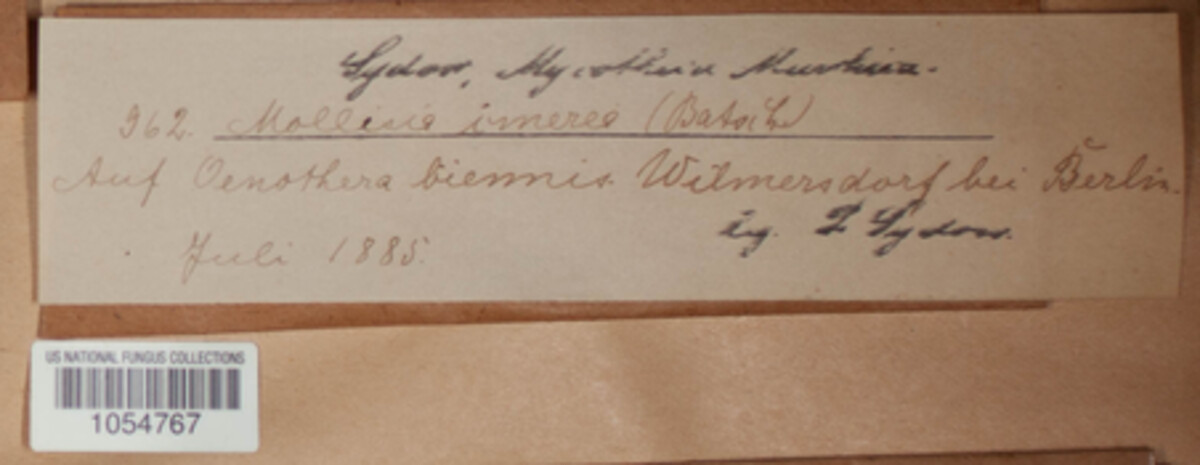 Sydow, Mycotheca Marchica.
962. Mollisia cinerea (Batsch)
Auf Oenothera biennis. Wilmersdorf bei Berlin.
lg. P. Sydow.
Juli 1885.
US NATIONAL FUNGUS COLLECTIONS
1054767